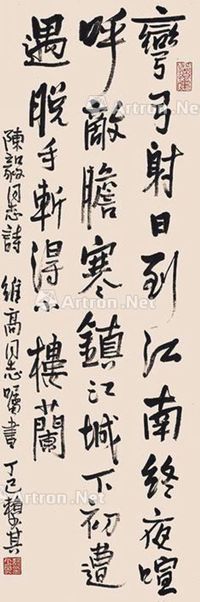 彎弓射日到江南終夜喧
呼敵膽寒鎮江城下初遭
遇脫手斬得小樓蘭
陳毅同志詩 維高同志囑書 丁巳賴少其
Artron.Net